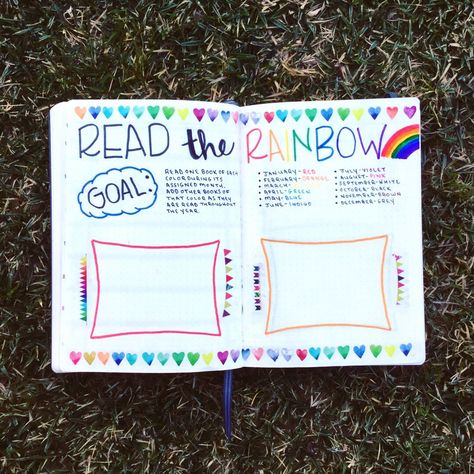 READ the RAINBOW
GOAL:
READ ONE BOOK OF EACH
COLOUR DURING ITS
ASSIGNED MONTH,
ADD OTHER BOOKS OF
THAT COLOR AS THEY
ARE READ THROUGHOUT
THE YEAR.
• JANUARY-RED
• FEBRUARY-ORANGE
• MARCH-
• APRIL-GREEN
• MAY-BLUE
• JUNE-INDIGO
• JULY-VIOLET
• AUGUST-PINK
• SEPTEMBER-WHITE
• OCTOBER-BLACK
• NOVEMBER-BROWN
• DECEMBER-GREY